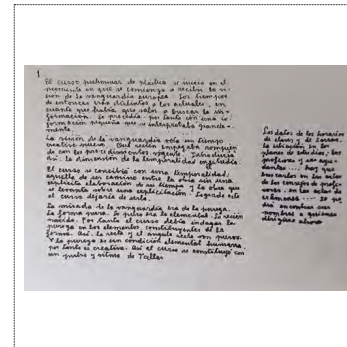 1
El curso preliminar de plástica se inicia en el
momento en que se comienza a recibir la vi-
sión de la vanguardia europea. Los tiempos
de entonces eran distintos a los actuales, en
cuanto que había que salir a buscar la in-
formación. Se precedía por tanto con una in-
formación pequeña que se interpretaba grande-
mente.
La visión de la vanguardia pedía un tiempo
creativo nuevo. Que recién empezaba rompien-
do con los procedimientos vigentes. Introducía
Así, la dimensión de la temporalidad
El curso se concibió con una temporalidad,
aquella de ser camino entre la obra sin una
explícita elaboración de su tiempo y la obra que
se levanta sobre una explicitación. Logrado esto
el curso dejaría de serlo.
La mirada de la vanguardia era de la pureza.
La forma pura. Lo pulcro era lo elemental. Lo recién
nacido. Por tanto el curso debía indagar la
pureza en los elementos constituyentes de la
forma. Así, la recta y el ángulo recto son puros.
Y la pureza es una condición elemental humana,
por tanto es creativa. Así el curso se constituyó con
un pulso y ritmo de Taller
Los datos de los horarios
de clases y de horas,
la ubicación en los
planes de estudios, los
profesores y sus ayu-
dantes .... hay que
buscarlos en las actas
de los consejos de profe-
sores. En las actas de
exámenes .... se po-
drá encontrar sus
nombres a quienes
dirigirse ahora